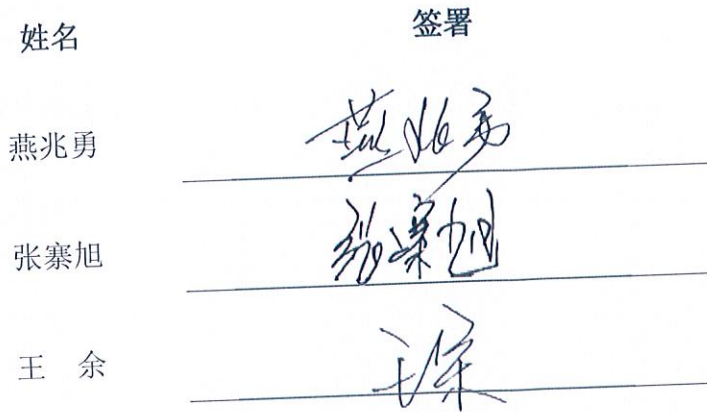 姓名 签署
燕兆勇 燕兆勇
张寨旭 张寨旭
王 余 王余